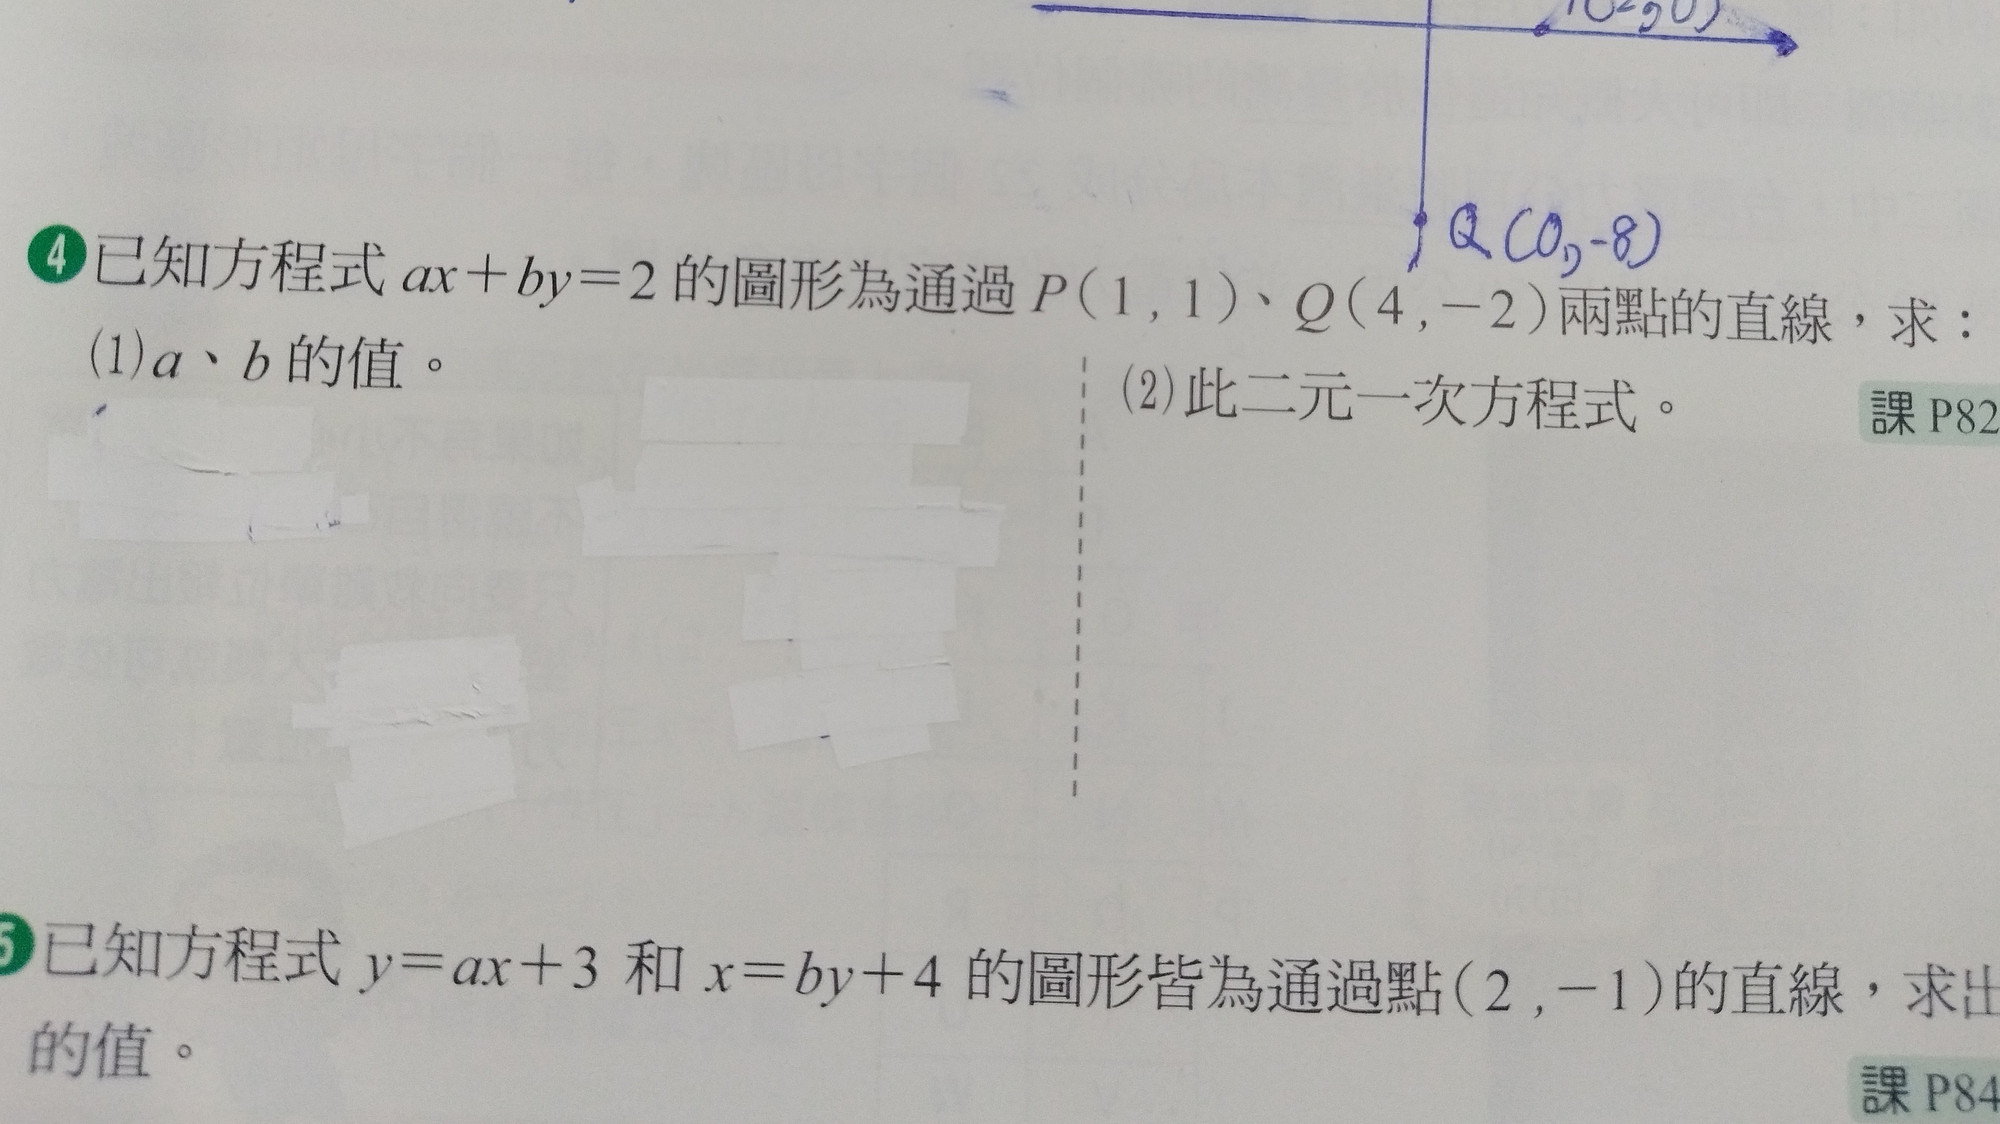 Q(0,-8)
4 已知方程式 ax+by=2 的圖形為通過 P(1,1)、Q(4,-2)兩點的直線，求：
(1)a、b 的值。
(2)此二元一次方程式。
課 P82
5 已知方程式 y=ax+3 和 x=by+4 的圖形皆為通過點(2,-1)的直線，求出
的值。
課 P84